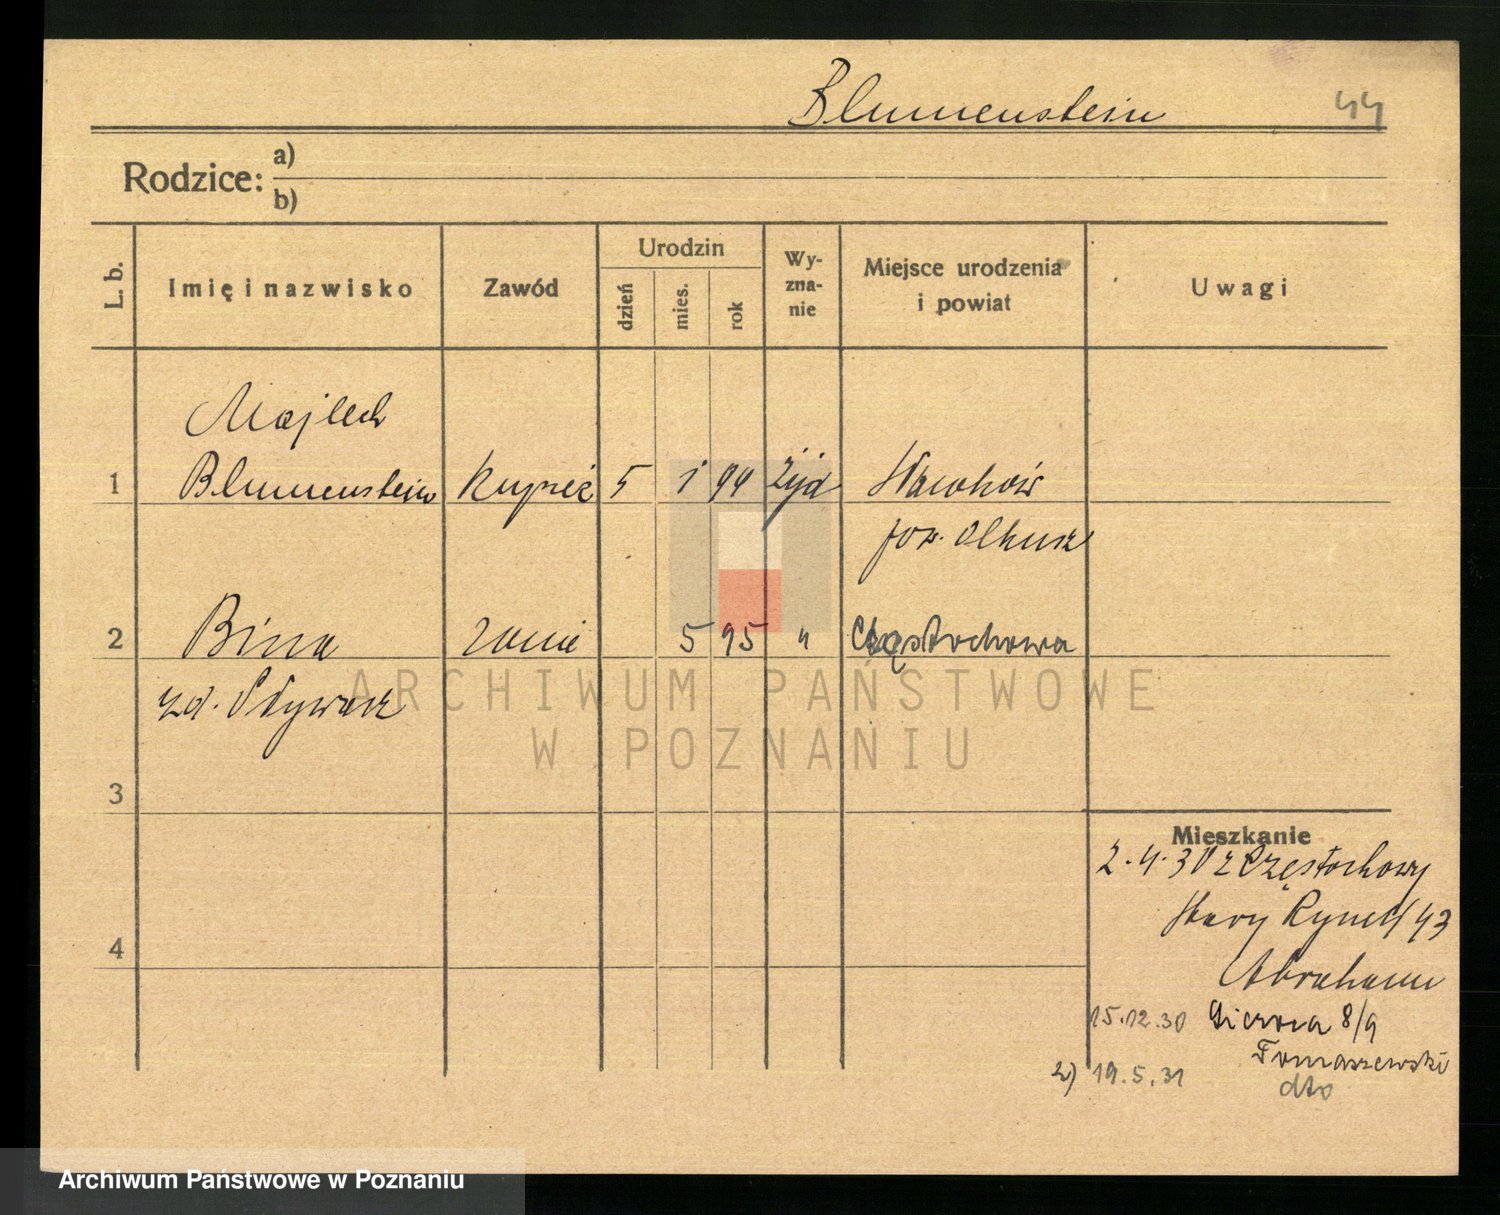 Blumenstein 44
Rodzice: a)
b)
L. b.
Imię i nazwisko
Zawód
Urodzin
dzień
mies.
rok
Wy-
zna-
nie
Miejsce urodzenia
i powiat
Uwagi
Majlech
1 Blumenstein kupiec 5 1 94 żyd
pow. Olkusz
2 Bina 5 95 " Częstochowa
3
4
Mieszkanie
2.4.30 z Częstochowy
Stary Rynek 43
Abraham
15.12.30 8/9
Tomaszewski
2) 19.5.31 dto
ARCHIWUM PAŃSTWOWE
W POZNANIU
Archiwum Państwowe w Poznaniu